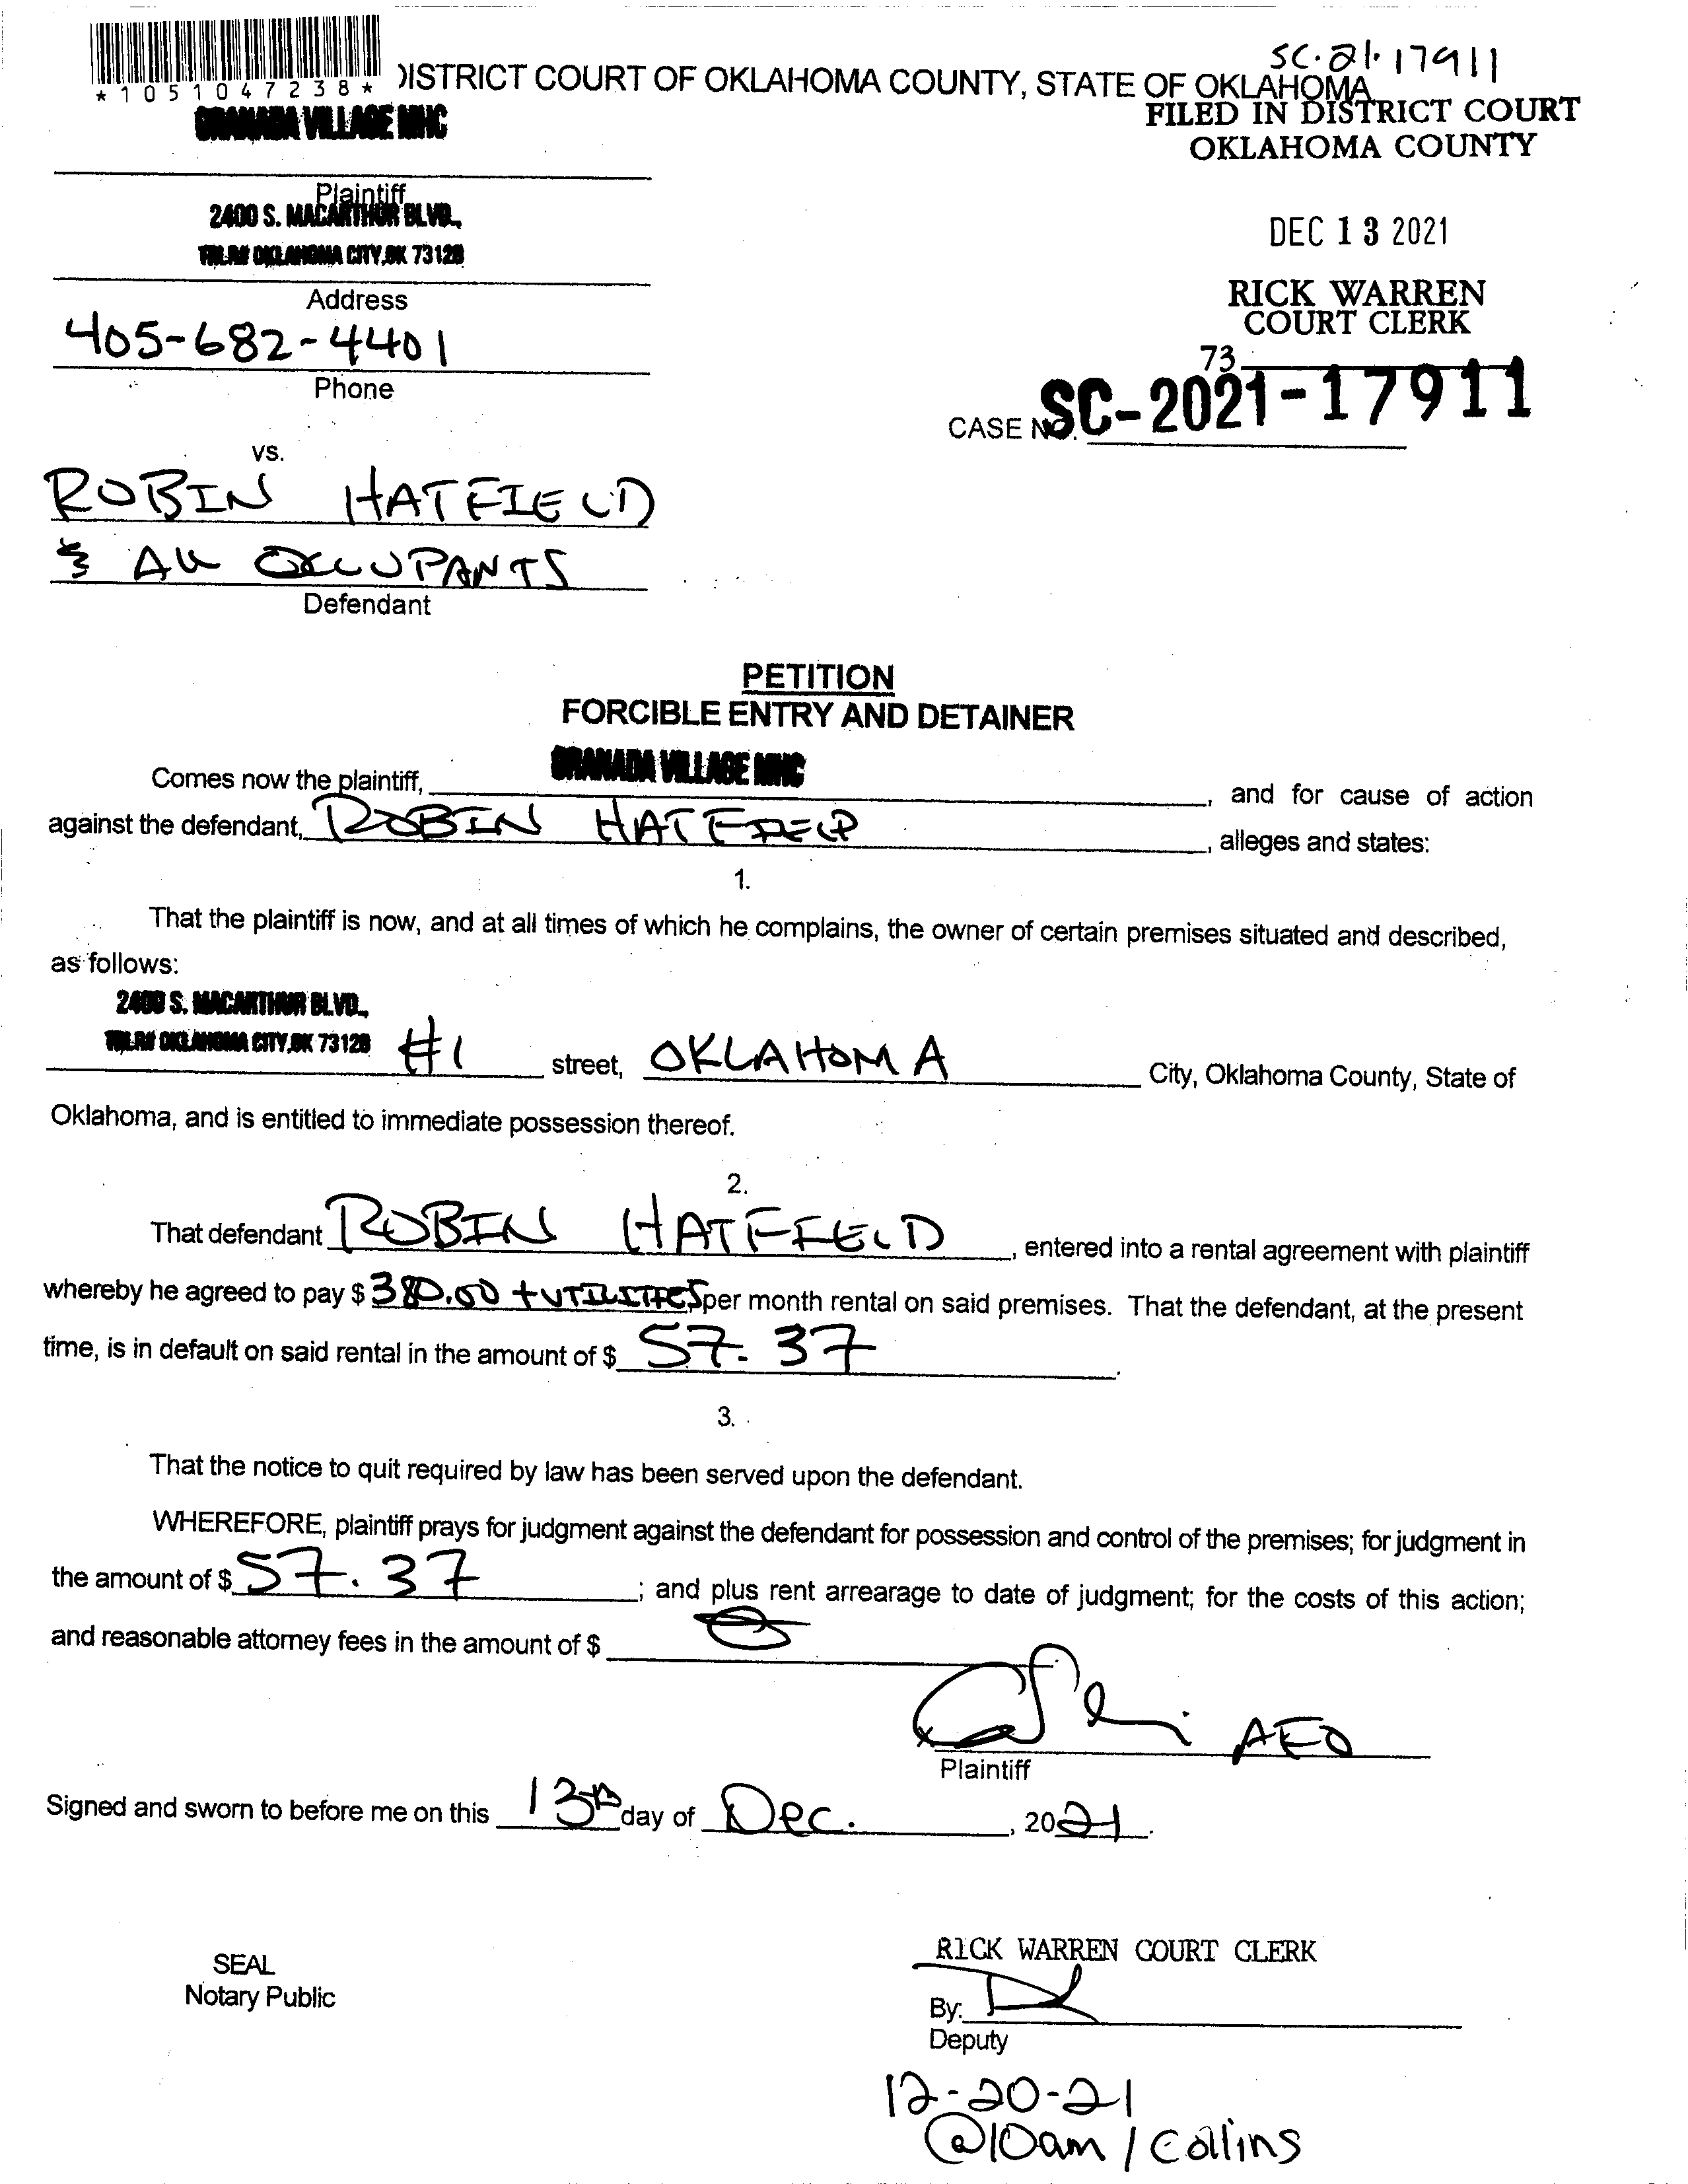 SC.21.17911
*1051047238*
DISTRICT COURT OF OKLAHOMA COUNTY, STATE OF OKLAHOMA
GRANADA VILLAGE MHC
FILED IN DISTRICT COURT
OKLAHOMA COUNTY
Plaintiff
2400 S. MACARTHUR BLVD.,
OKLAHOMA CITY, OK 73128
DEC 13 2021
Address
RICK WARREN
COURT CLERK
405-682-4401
73
Phone
CASE NO. SC-2021-17911
vs.
ROBIN HATFIELD
& All OCCUPANTS
Defendant
PETITION
FORCIBLE ENTRY AND DETAINER
Comes now the plaintiff, GRANADA VILLAGE MHC, and for cause of action
against the defendant, ROBIN HATFIELD, alleges and states:
1.
That the plaintiff is now, and at all times of which he complains, the owner of certain premises situated and described,
as follows:
2400 S. MACARTHUR BLVD.,
OKLAHOMA CITY, OK 73128 #1 street, OKLAHOMA City, Oklahoma County, State of
Oklahoma, and is entitled to immediate possession thereof.
2.
That defendant ROBIN HATFIELD, entered into a rental agreement with plaintiff
whereby he agreed to pay $ 380.00 + UTILITIES per month rental on said premises. That the defendant, at the present
time, is in default on said rental in the amount of $ 57.37.
3.
That the notice to quit required by law has been served upon the defendant.
WHEREFORE, plaintiff prays for judgment against the defendant for possession and control of the premises; for judgment in
the amount of $ 57.37; and plus rent arrearage to date of judgment; for the costs of this action;
and reasonable attorney fees in the amount of $
x AEO
Plaintiff
Signed and sworn to before me on this 13th day of Dec., 2021.
SEAL
Notary Public
RICK WARREN COURT CLERK
By:
Deputy
12-20-21
@10am / Collins